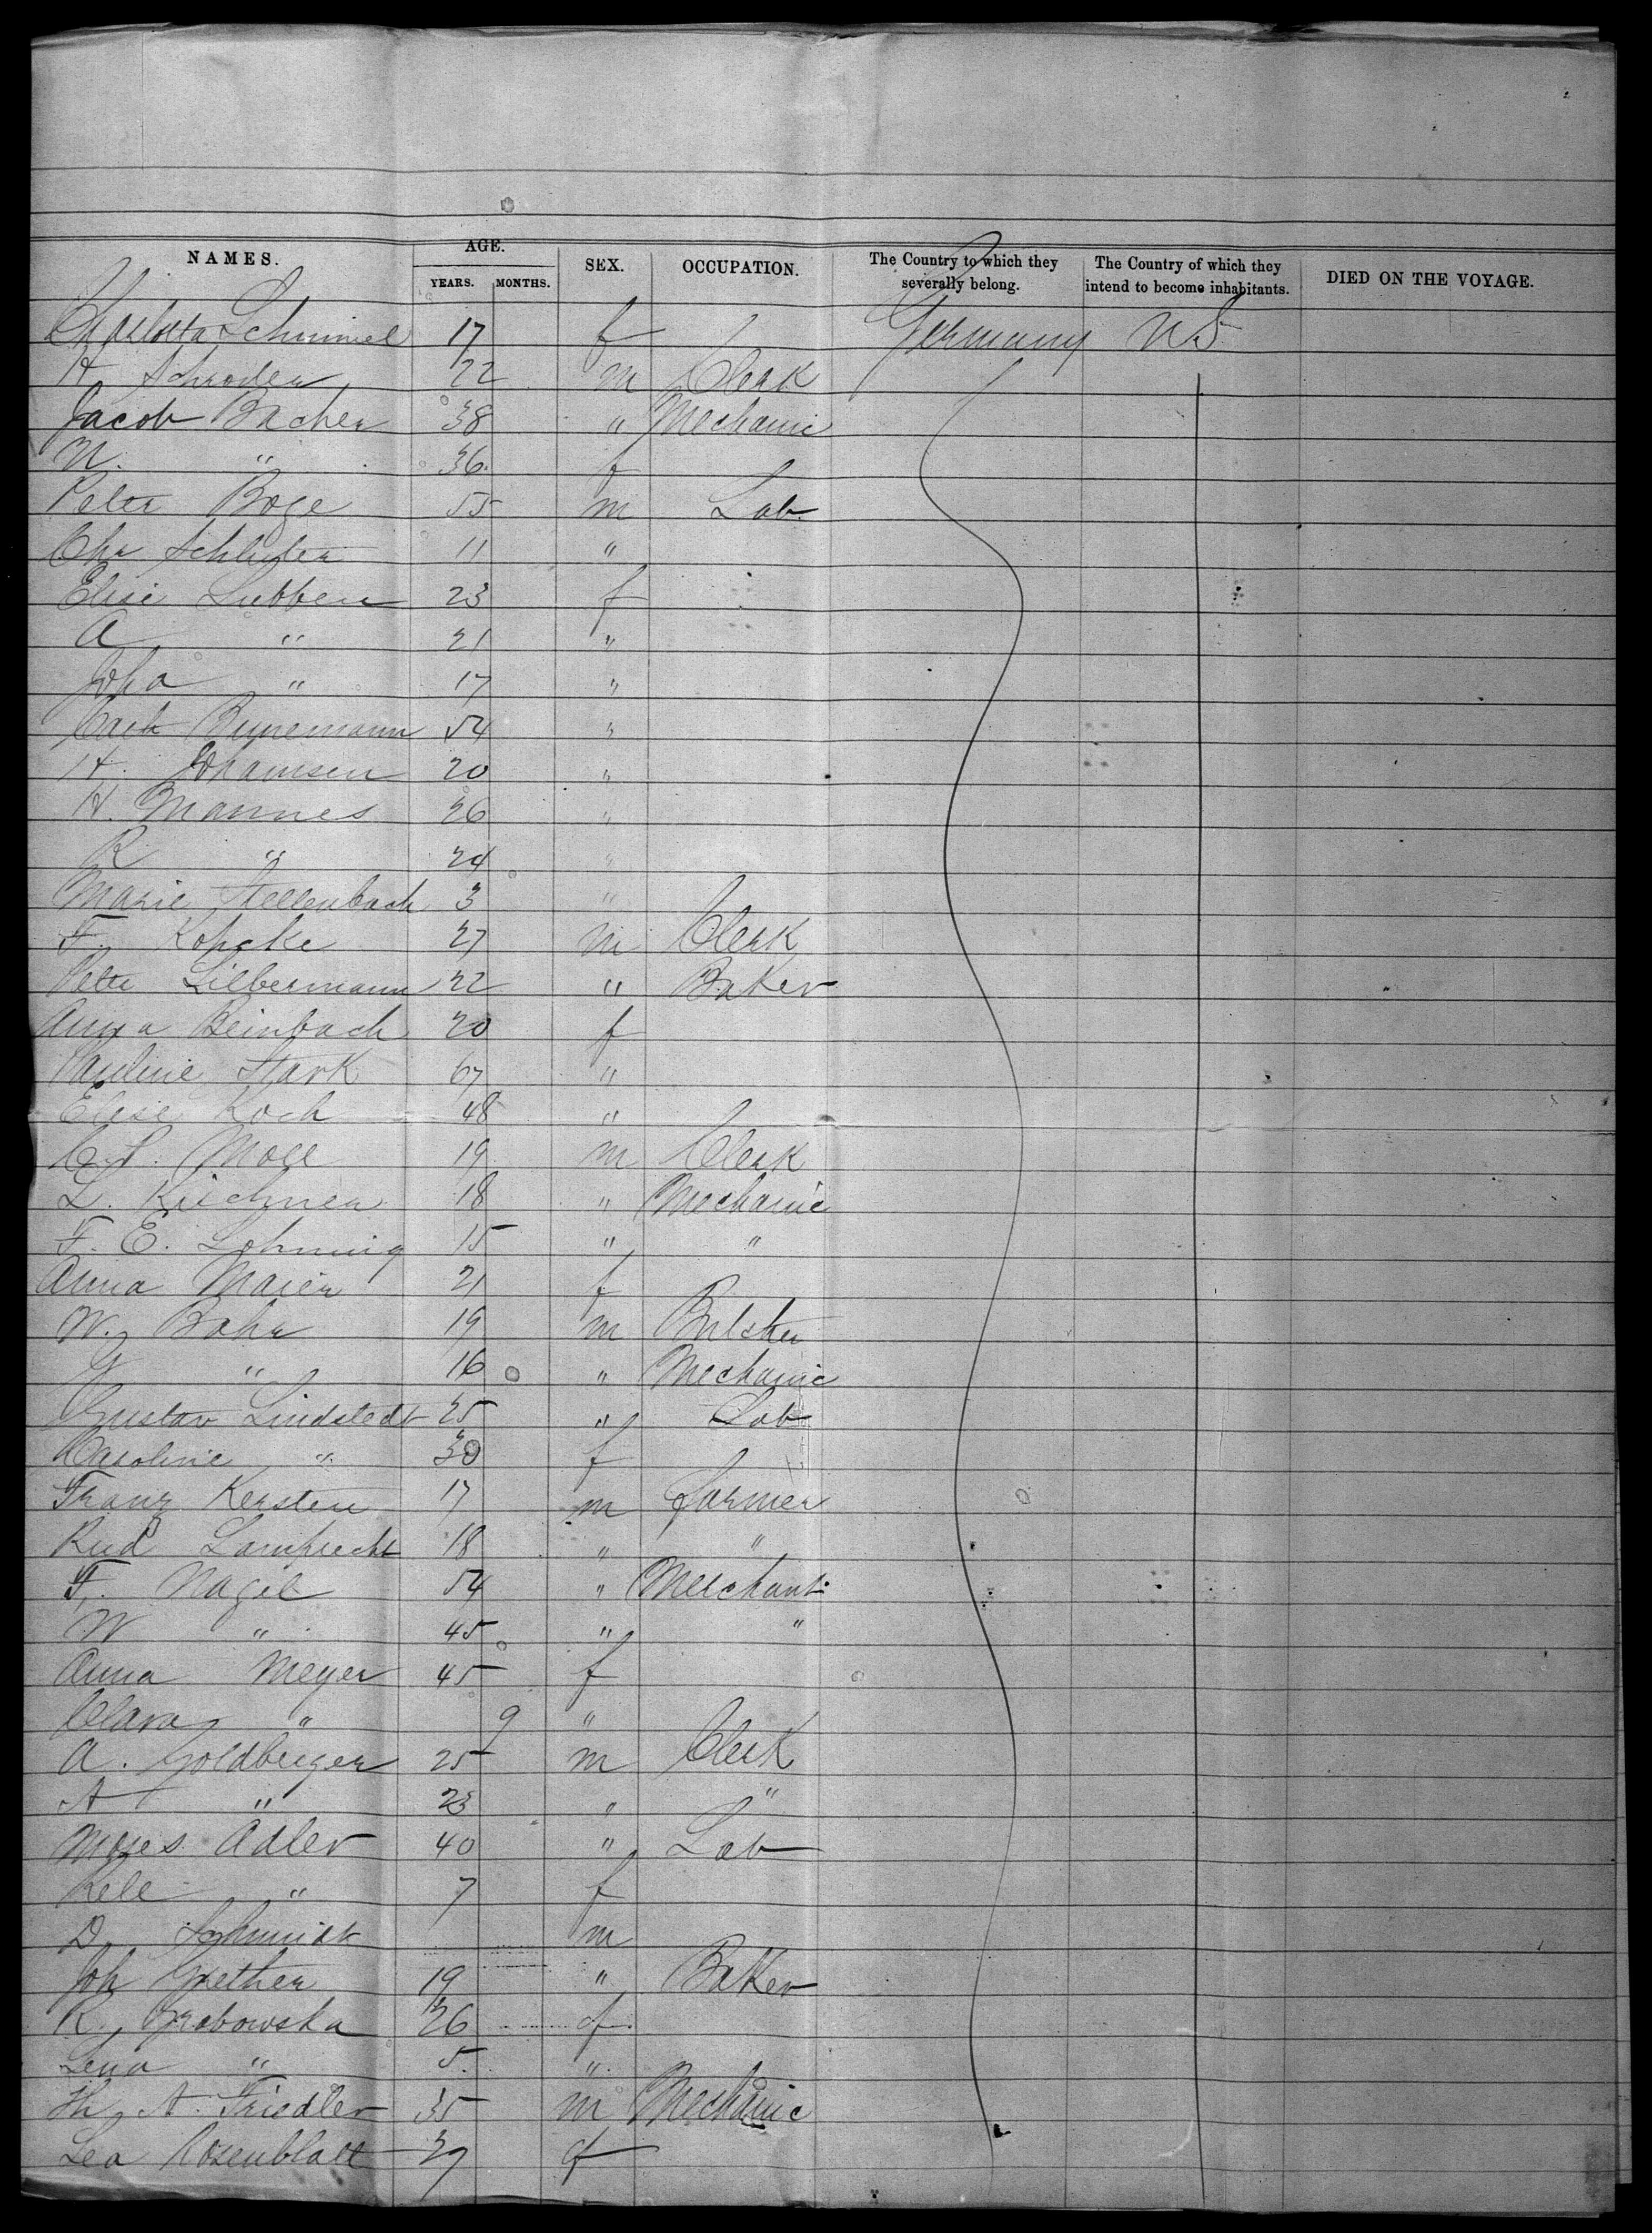 NAMES. AGE. SEX. OCCUPATION. The Country to which they severally belong. The Country of which they intend to become inhabitants. DIED ON THE VOYAGE.
YEARS. MONTHS.
Charlotta Schimmel 17 f Germany U S
H Schroder 22 m Clerk
Jacob Bacher 38 " Mechanic
M. " 36 f
Peter Boge 55 m Lab.
Chr Schluter 11 "
Elise Lubben 23 f
A " 21 "
Joha " 17 "
Cath Bunemann 54 "
H. Johannsen 20 "
H. Mannes 26 "
R " 24 "
Marie Stellenbach 3 "
F. Kohcke 27 m Clerk
Peter Silbermann 22 " Baker
Anna Beinbach 20 f
Pauline Stark 67 "
Elise Koch 48 "
Moll 19 m Clerk
L. Kirchner 18 " Mechanic
F. E. Lohning 15 " "
Anna Maier 21 f
W. Bahr 19 m Butcher
" 16 " Mechanic
Gustav Lindstedt 25 " Lab
Caroline " 30 f
Franz Kersten 17 m farmer
Rud Lamprecht 18 " "
F. Nagel 54 " Merchant
W " 45 " "
Anna Meyer 45 f
Clara " 9 "
A. Goldberger 25 m Clerk
A " 23 " "
Moses Adler 40 " Lab
Kele " 7 f
D. Schmidt m
Joh Grether 19 " Baker
R. Grabowska 26 f
Lena " 5 "
Th. A. Friedler 35 m Mechanic
Lea Rosenblatt 27 f